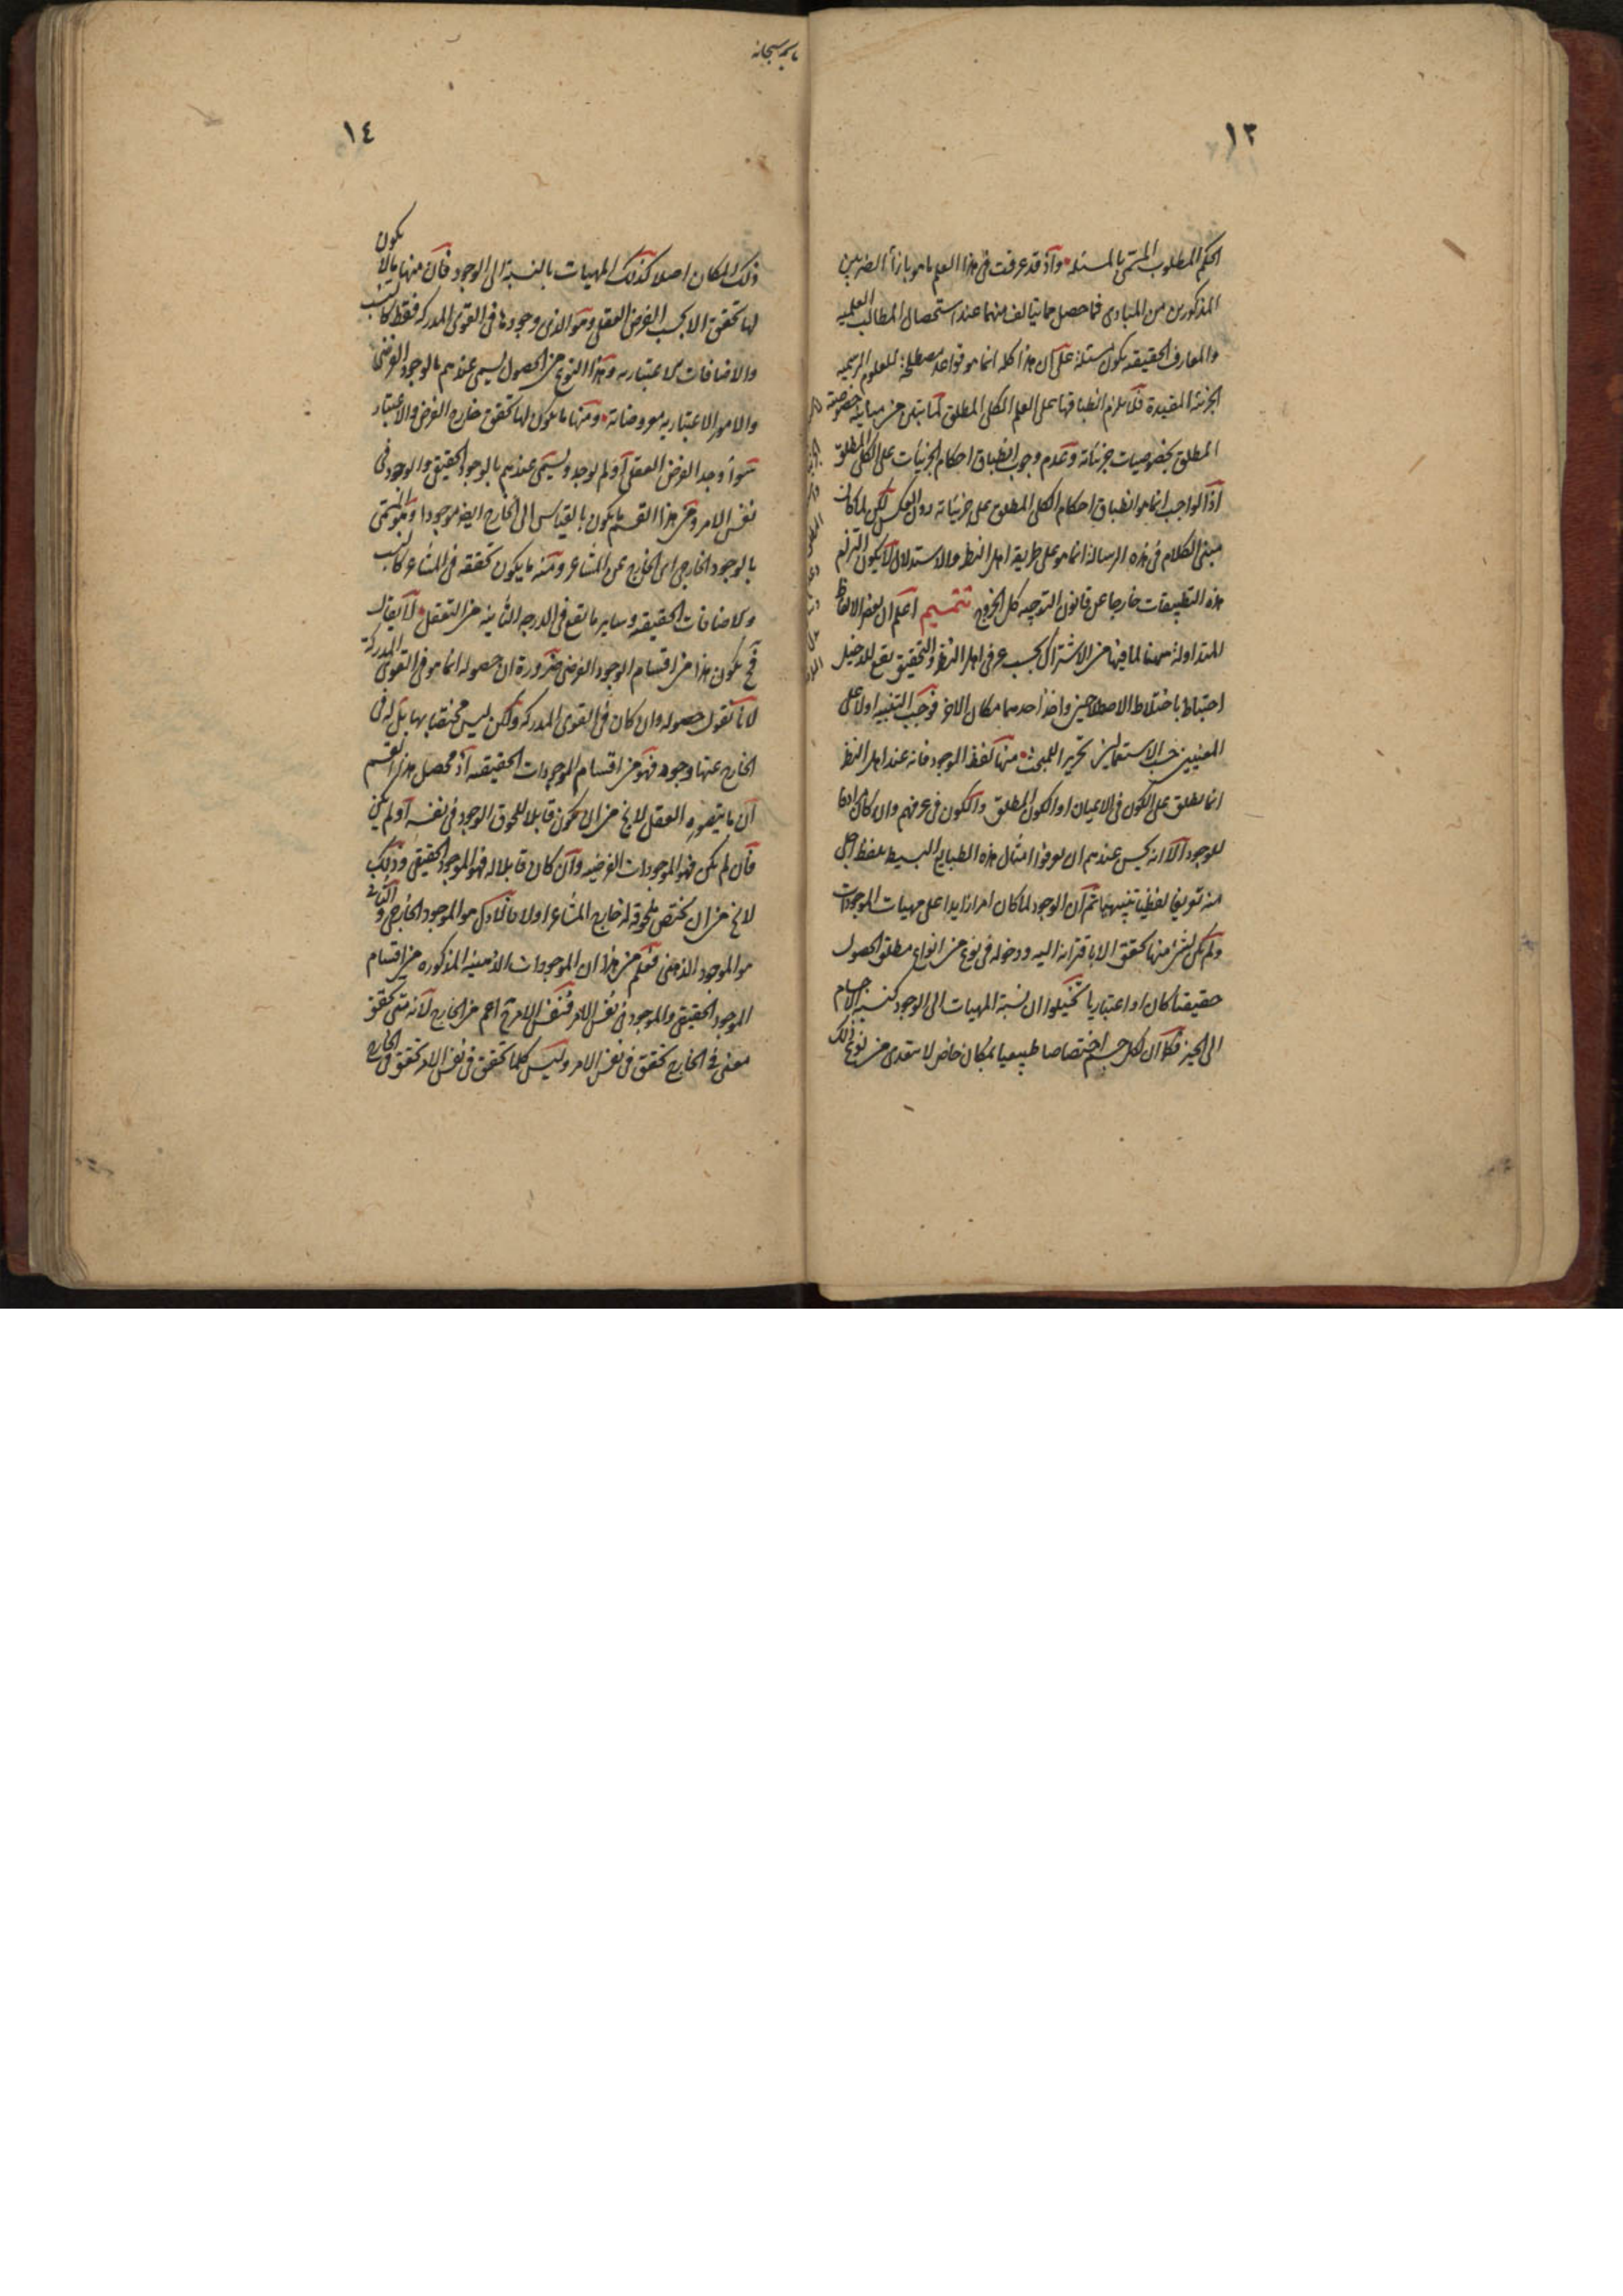 ١٣
الحكم المطلوب المسمى بالمسئلة واذ قد عرفت فى هذا العلم ما هو بازاء الضربين
المذكورين من المبادى فما حصل مما يتالف منهما عند استحصال المطالب العلميه
والمعارف الحقيقيه يكون مسئلة على ان هذا كله انما هو قواعد مصطلحة للعلوم الرسميه
الجزئية المقيدة فلا يلزم انطباقها على العلم الكلى المطلق لما تبين من مباينة خصوصية
المطلق بخصوصيات جزئياته وعدم وجوب انطباق احكام الجزئيات على الكلى المطلق
اذ الواجب انما هو انطباق احكام الكلى المطلق على جزئياته دون العكس لكن لما كان
مبنى الكلام فى هذه الرسالة انما هو على طريقة اهل النظر والاستدلال لا يكون التزام
هذه التطبيقات خارجا عن قانون التوجيه كل الخروج تتميم اعلم ان بعض الالفاظ
المتداولة ههنا لما فيها من الاشتراك بحسب عرفى اهل النظر والتحقيق يقع للدخيل
اختباط باختلاط الاصطلاحين واخذ احدهما مكان الاخر فوجب التنبيه اولا على
المعنيين حسب الاستعمالين تحرير اللمبحث منها لفظ الوجود فانه عند اهل النظر
انما يطلق على الكون فى الاعيان او الكون المطلق والكون فى عرفهم وان كان مرادفا
للوجود الا انه ليس عندهم ان يعرفوا امثال هذه الطبايع البسيط بلفظ اجلى
منه تعريفا لفظيا تنبيهيا ثم ان الوجود لما كان امرا زايدا على مهيات الموجودات
ولم يكن لشئ منها تحقق الا باقترانه اليه ودخوله فى نوع من انواع مطلق الحصول
حقيقيا كان او اعتباريا تخيلوا ان نسبة المهيات الى الوجود كنسبة الاجسام
الى الحيز فكما ان لكل جسم اختصاصا طبيعيا بمكان خاص لا يتعدى من نوع ذلك
باسمه سبحانه
١٤
ذلك المكان اصلا كذلك المهيات بالنسبة الى الوجود فان منها ما لا يكون
لها تحقق الا بحسب الفرض العقلى وهو الذى وجودها فى القوى المدركة فقط كالنسب
والاضافات الاعتباريه وهذا النوع من الحصول يسمى عندهم بالوجود الفرضى
والامور الاعتباريه معروضاته ومنها ما يكون لها تحقق خارج الفرض والاعتبار
سواء وجد الفرض العقلى او لم يوجد ويسمى عندهم بالوجود الحقيقى والوجود فى
نفس الامر ومن هذا القسم ما يكون بالقياس الى الخارج ايضا موجودا وهو المسمى
بالوجود الخارجى اى الخارج عن المشاعر ومنه ما يكون تحققه فى المشاعر كالنسب
والاضافات الحقيقيه وساير ما تقع فى الدرجة الثانية من التعقل لا يقال
فح يكون هذا من اقسام الوجود الفرضى ضرورة ان حصوله انما هو فى القوى المدركة
لانا نقول حصوله وان كان فى القوى المدركه ولكن ليس مختصا بها بل له فى
الخارج عنها وجود فهو من اقسام الموجودات الحقيقيه اذ محصل هذا التقسيم
ان ما يتصوره العقل لا يخ من ان يكون قابلا للحوق الوجود فى نفسه او لم يكن
فان لم يكن فهو الموجودات الفرضيه وان كان قابلا له فهو الموجود الحقيقى وذلك
لا يخ من ان يختص لحوقه له خارج المشاعر اولا فالاول هو الموجود الخارجى والثانى
هو الموجود الذهنى فعلم من هذا ان الموجودات الذهنية المذكوره من اقسام
الموجود الحقيقى والموجود فى نفس الامر فنفس الامر ح اعم من الخارج لانه متى تحقق
معنى فى الخارج تحقق فى نفس الامر وليس كلما تحقق فى نفس الامر تحقق فى الخارج